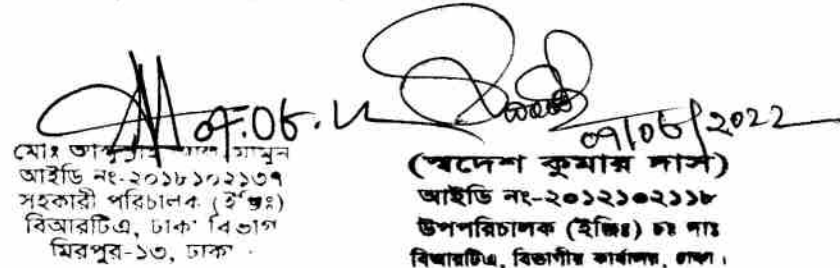 ০৭.০৬.২২
মোঃ আল মামুন
আইডি নং-২০১৮১০২১৩৭
সহকারী পরিচালক (ইঞ্জিঃ)
বিআরটিএ, ঢাকা বিভাগ
মিরপুর-১৩, ঢাকা
০৭/০৬/2022
(স্বদেশ কুমার দাস)
আইডি নং-২০১২১০২১১৮
উপপরিচালক (ইঞ্জিঃ) চঃ দাঃ
বিআরটিএ, বিভাগীয় কার্যালয়, ঢাকা।